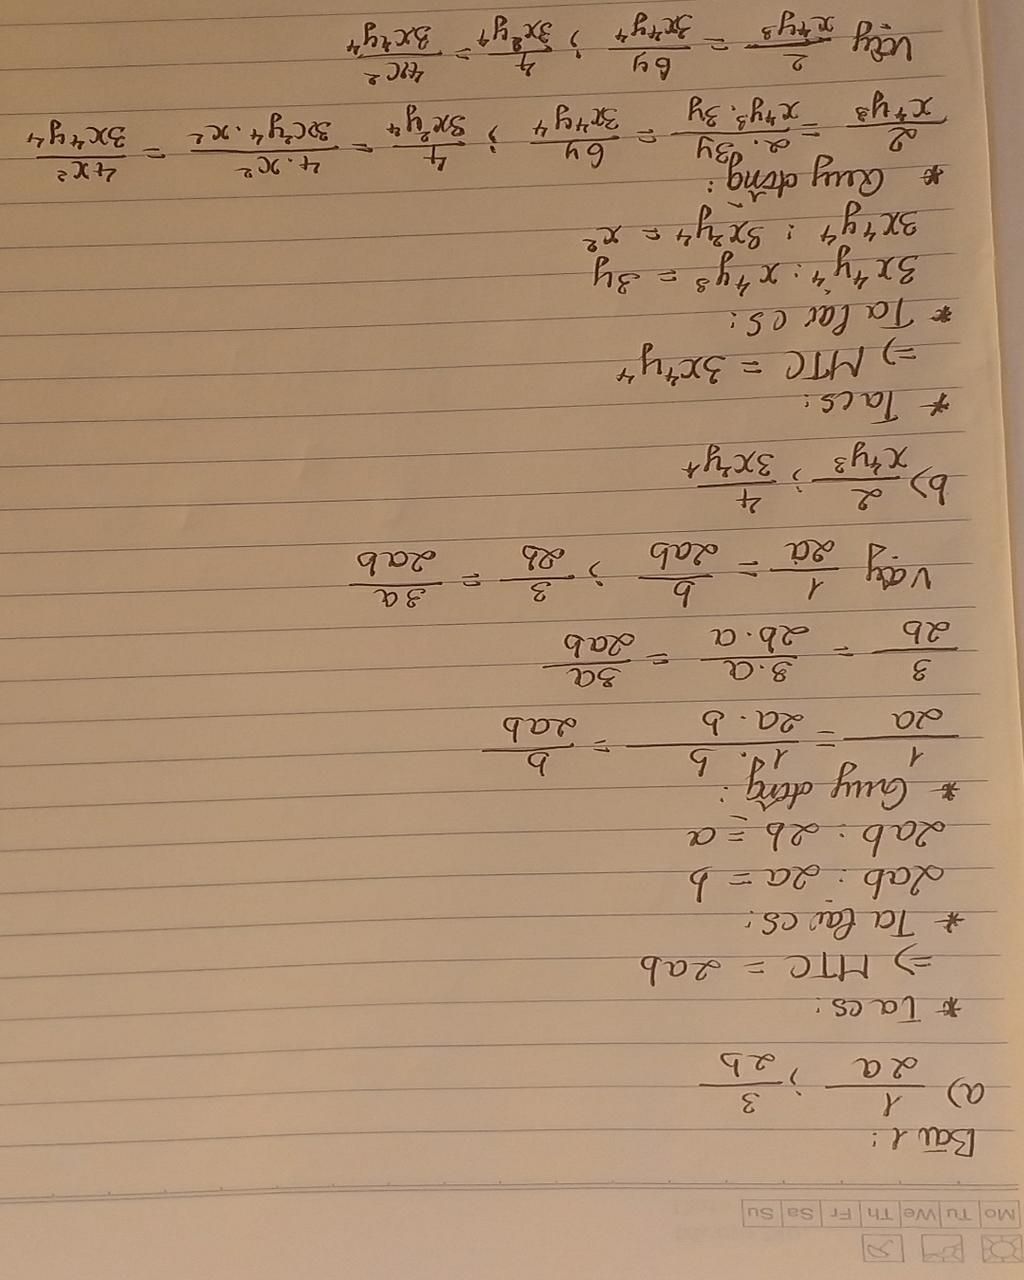 Mo Tu We Th Fr Sa Su
Bài 1:
a) 1/2a ; 3/2b
* Ta có:
=> MTC = 2ab
* Ta lại có:
2ab : 2a = b
2ab : 2b = a
* Quy đồng:
1/2a = 1.b/2a.b = b/2ab
3/2b = 3.a/2b.a = 3a/2ab
Vậy 1/2a = b/2ab ; 3/2b = 3a/2ab
b) 2/x⁴y³ ; 4/3x²y⁴
* Ta có:
=> MTC = 3x⁴y⁴
* Ta lại có:
3x⁴y⁴ : x⁴y³ = 3y
3x⁴y⁴ : 3x²y⁴ = x²
* Quy đồng:
2/x⁴y³ = 2.3y/x⁴y³.3y = 6y/3x⁴y⁴ ; 4/3x²y⁴ = 4.x²/3x²y⁴.x² = 4x²/3x⁴y⁴
Vậy 2/x⁴y³ = 6y/3x⁴y⁴ ; 4/3x²y⁴ = 4x²/3x⁴y⁴